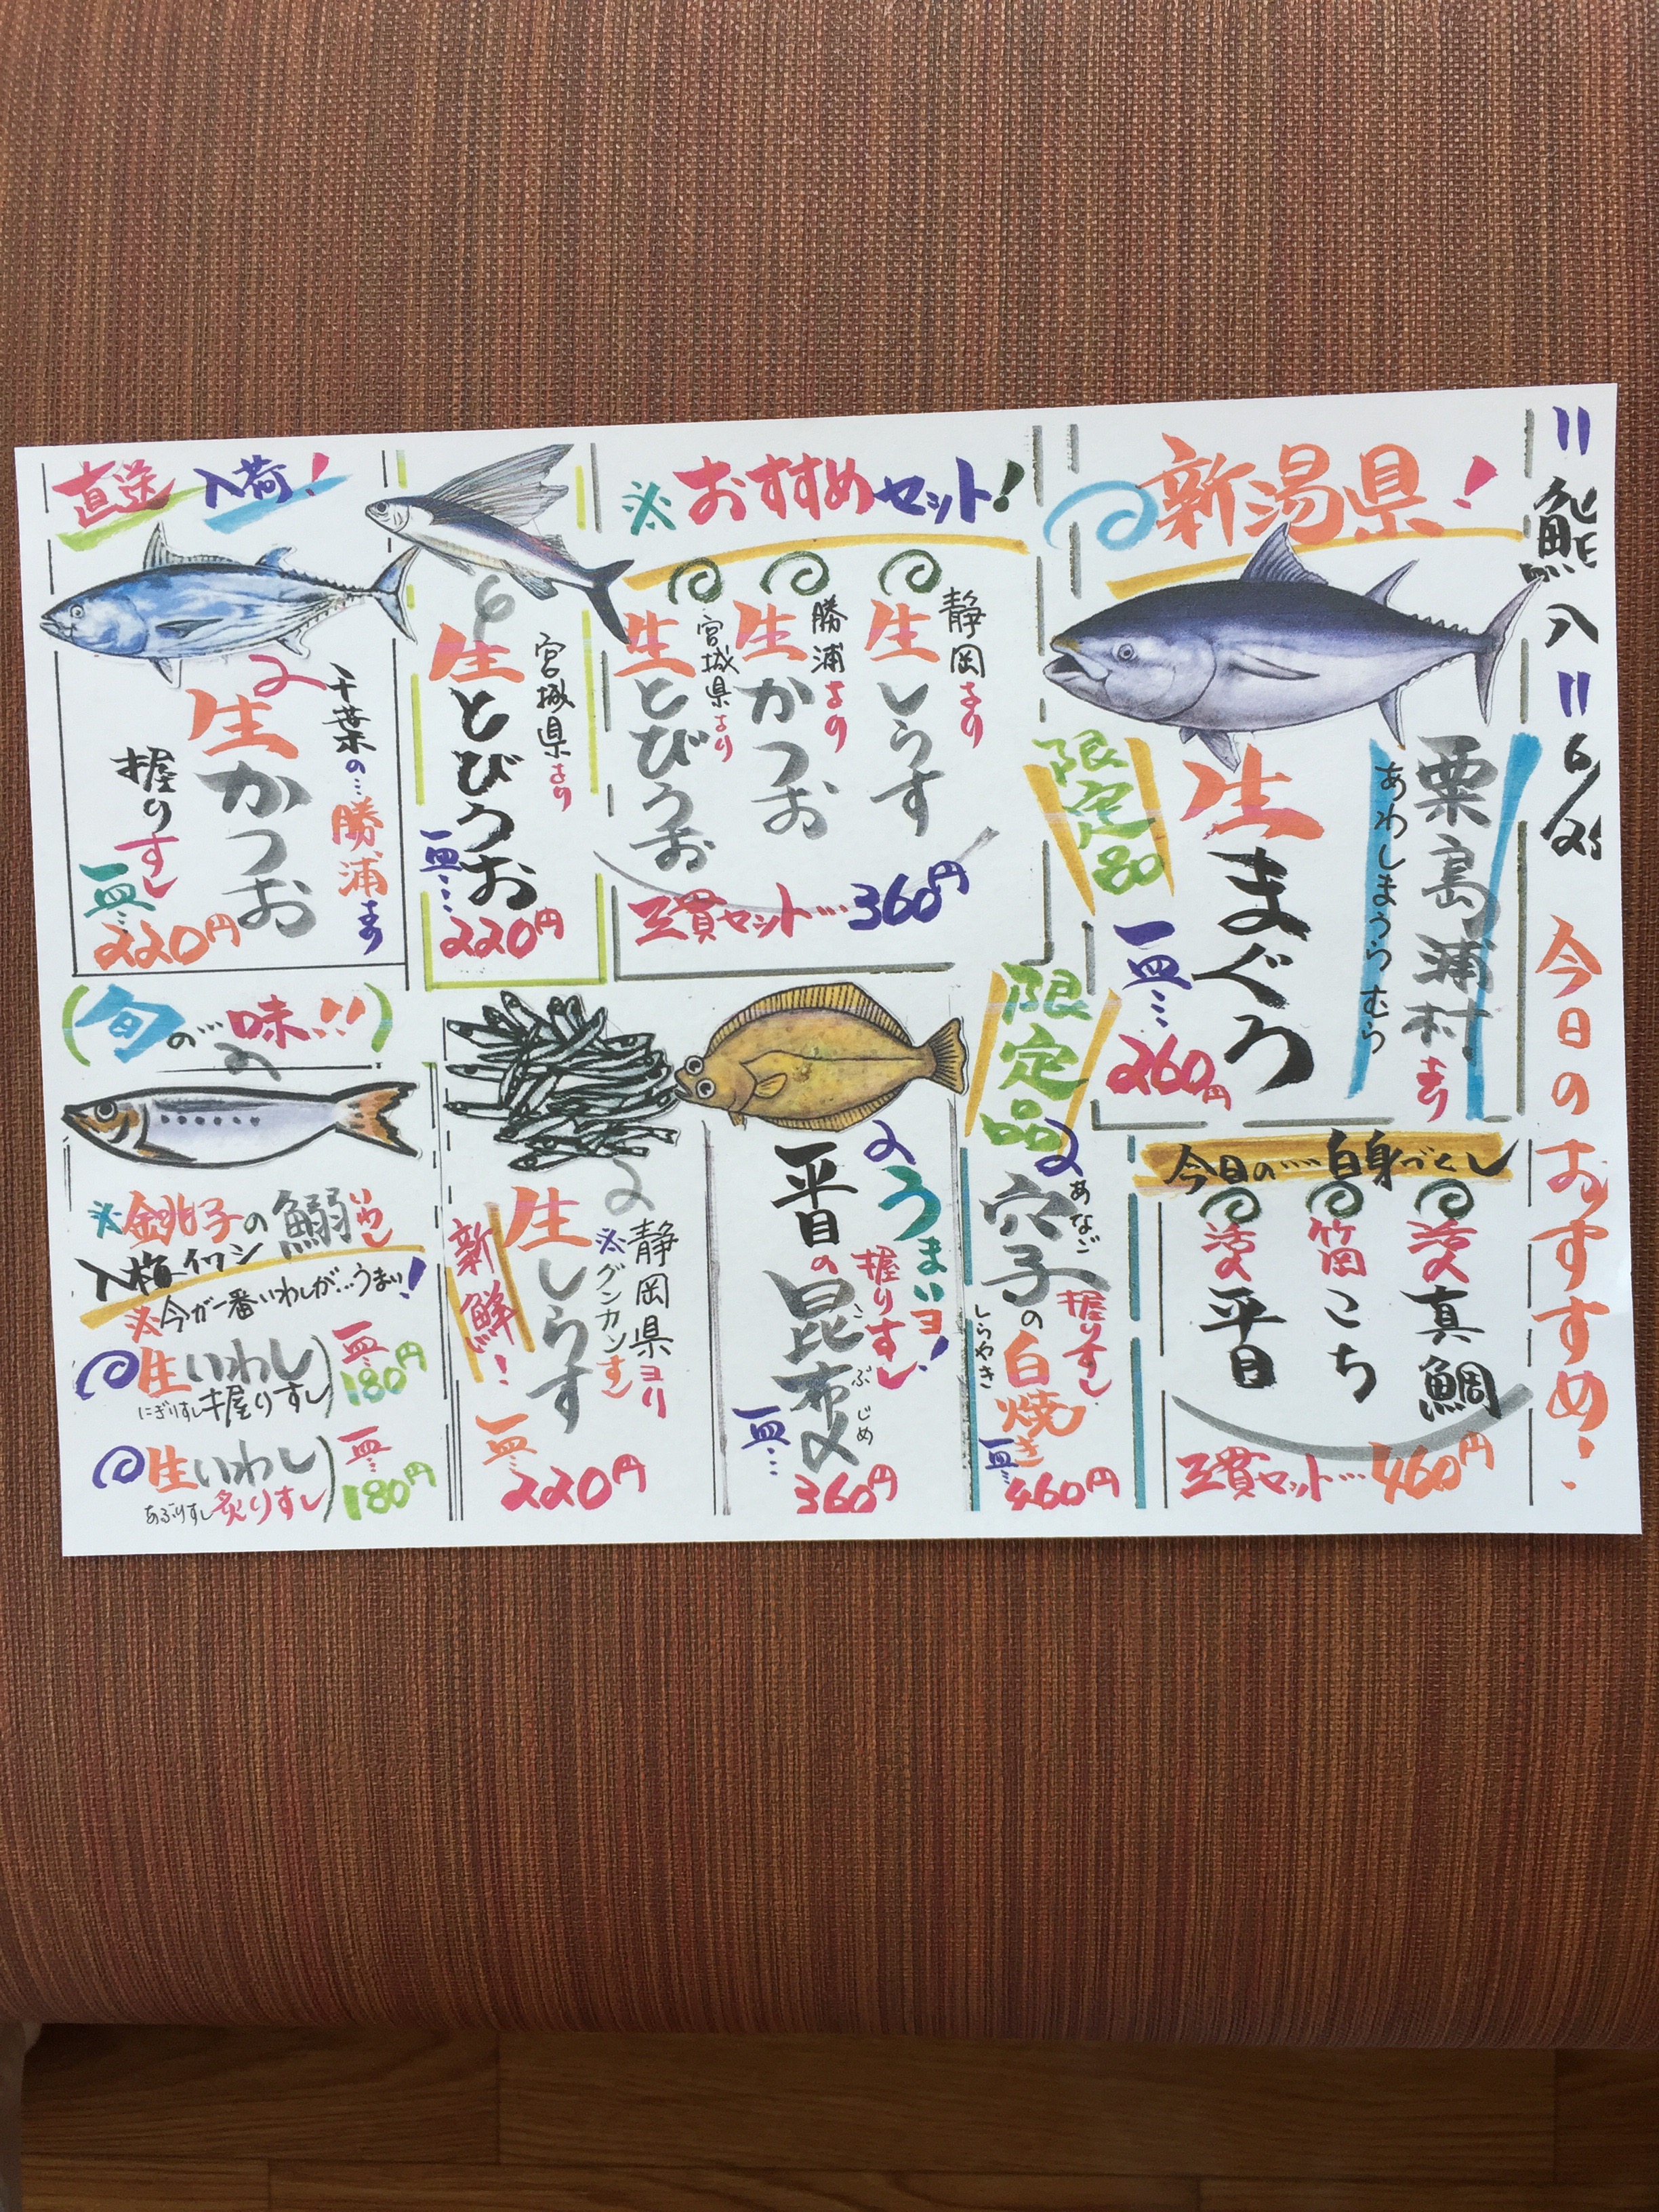 入
今日のおすすめ!
新潟県!
粟島浦村より
あわしまうらむら
生まぐろ
限定品
一皿…
260円
※おすすめセット!
静岡より
生しらす
勝浦より
生かつお
宮城県より
生とびうお
三貫セット…360円
宮城県より
生とびうお
一皿…
220円
直送入荷!
千葉の…勝浦より
生かつお
握りすし
一皿…
220円
今日の…白身づくし
真鯛
竹岡こち
平目
三貫セット…460円
限定品
あなご
穴子の白焼き
しらやき
握りすし
一皿…
460円
うまいヨ!
握りすし
平目の昆布〆
こぶじめ
一皿…
360円
静岡県ヨリ
※グンカンすし
生しらす
新鮮!
一皿…
220円
(旬の…味!!)
※銚子の鰯
いわし
入梅イワシ
※今が一番いわしが…うまい!
生いわし
にぎりすし握りすし
一皿…
180円
生いわし
あぶりすし炙りすし
一皿…
180円